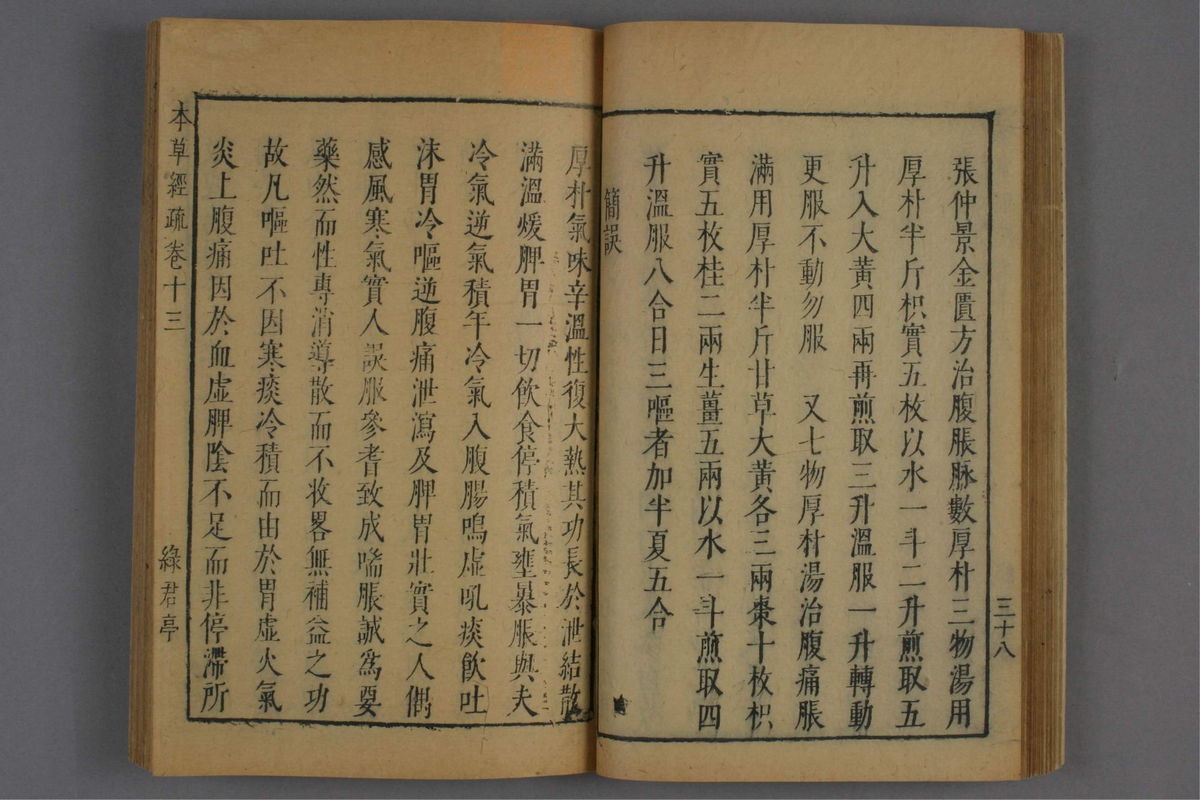 三十八
張仲景金匱方治腹脹脉數厚朴三物湯用
厚朴半斤枳實五枚以水一斗二升煎取五
升入大黃四兩再煎取三升溫服一升轉動
更服不動勿服 又七物厚朴湯治腹痛脹
滿用厚朴半斤甘草大黃各三兩棗十枚枳
實五枚桂二兩生薑五兩以水一斗煎取四
升溫服八合日三嘔者加半夏五合
簡誤
厚朴氣味辛溫性復大熱其功長於泄結散
滿溫煖脾胃一切飲食停積氣壅暴脹與夫
冷氣逆氣積年冷氣入腹腸鳴虛吼痰飲吐
沫胃冷嘔逆腹痛泄瀉及脾胃壯實之人偶
感風寒氣實人誤服參耆致成喘脹誠為要
藥然而性專消導散而不收畧無補益之功
故凡嘔吐不因寒痰冷積而由於胃虛火氣
炎上腹痛因於血虛脾陰不足而非停滯所
本草經疏卷十三
綠君亭